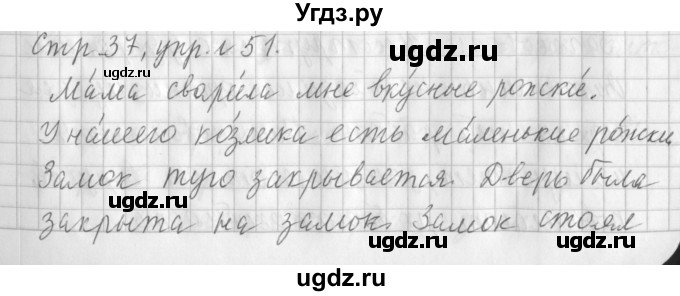 Угдз.ру
Стр. 37, упр. № 51.
Ма́ма свари́ла мне вку́сные рожки́.
У на́шего ко́злика есть ма́ленькие ро́жки
Замок туго закрывается. Дверь была
закрыта на замок. Замок стоял
ugdz.ru
ugdz.ru
ugdz.ru
ugdz.ru
ugdz.ru
ugdz.ru
ugdz.ru